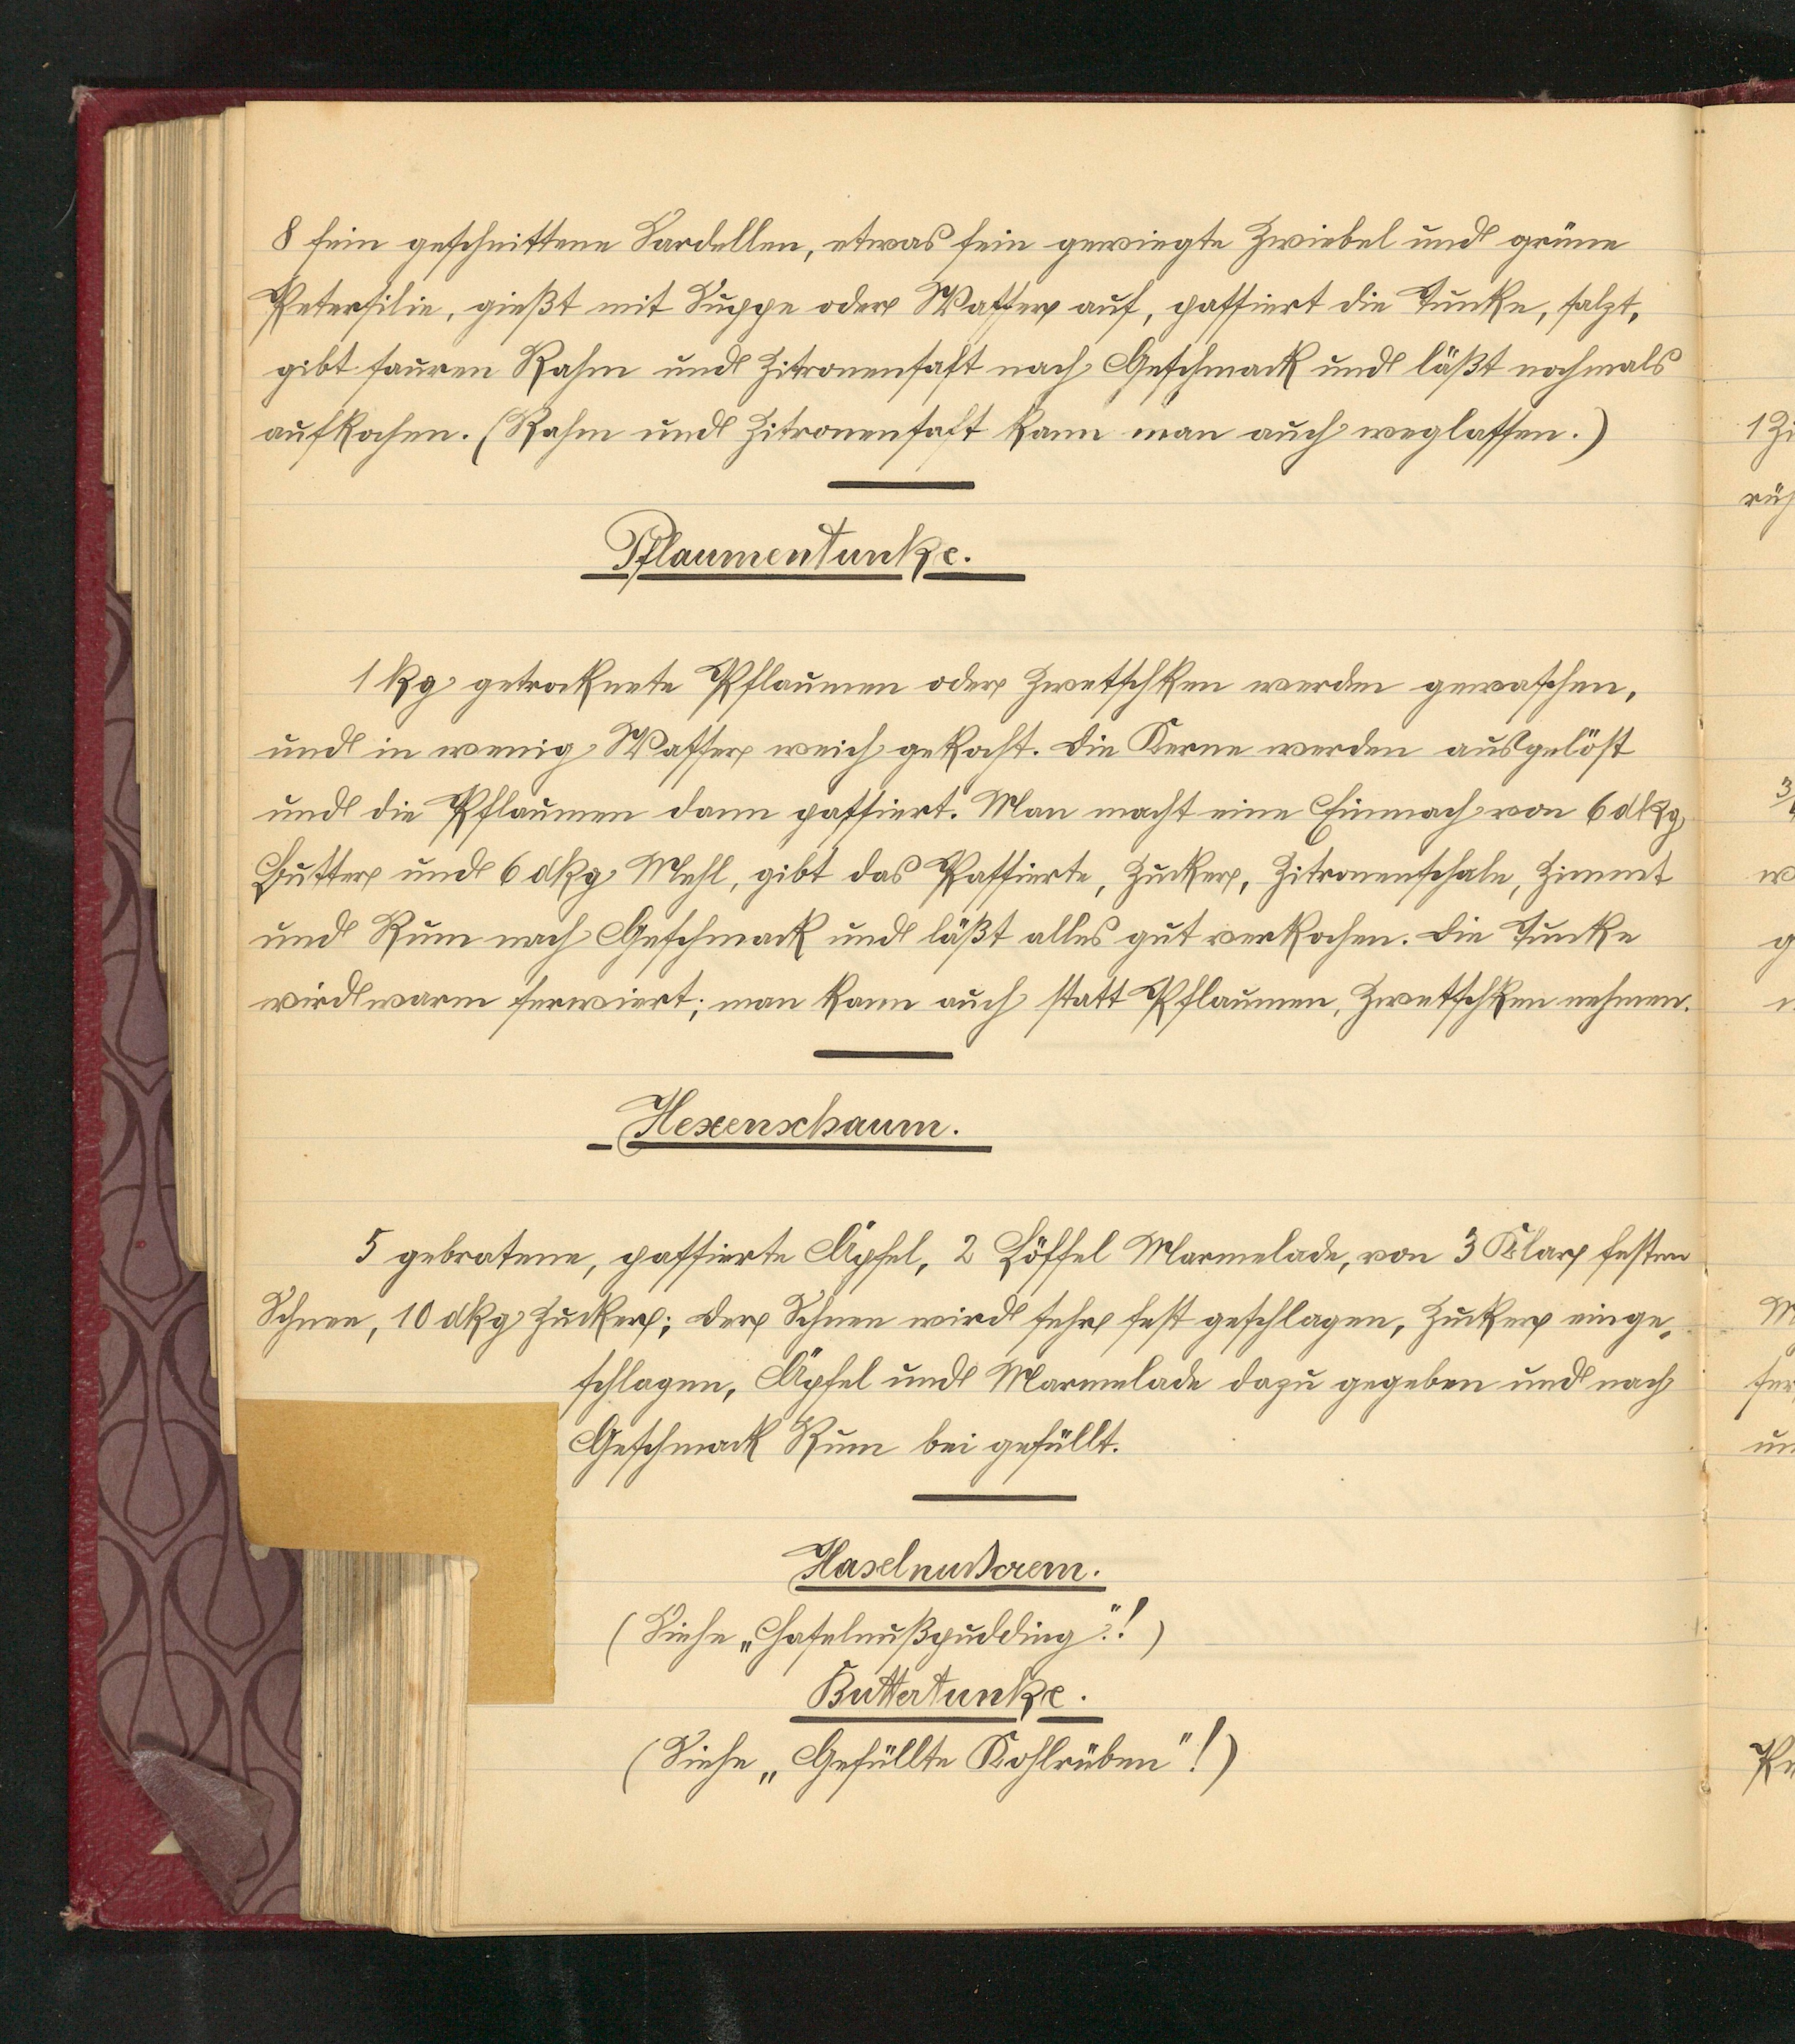 8 fein geschnittene Sardellen, etwas fein gewiegte Zwiebel und grüne
Petersilie, gießt mit Suppe oder Wasser auf, passiert die Tunke, salzt,
gibt sauren Rahm und Zitronensaft nach Geschmack und läßt nochmals
aufkochen. (Rahm und Zitronensaft kann man auch weglassen.)
Pflaumentunke.
1 kg getrocknete Pflaumen oder Zwetschken werden gewaschen,
und in wenig Wasser weich gekocht. Die Kerne werden ausgelöst
und die Pflaumen dann passiert. Man macht eine Einmach von 6 dkg
Butter und 6 dkg Mehl, gibt das Passierte, Zucker, Zitronenschale, Zimmt
und Rum nach Geschmack und läßt alles gut verkochen. Die Tunke
wird warm serviert; man kann auch statt Pflaumen, Zwetschken nehmen.
Hexenschaum.
5 gebratene, passierte Äpfel, 2 Löffel Marmelade, von 3 Klar festen
Schnee, 10 dkg Zucker; der Schnee wird sehr fest geschlagen, Zucker einge-
schlagen, Äpfel und Marmelade dazu gegeben und nach
Geschmack Rum bei gefüllt.
Haselnußcrem.
(Siehe „Haselnußpudding"!)
Buttertunke.
(Siehe „Gefüllte Kohlrüben"!)